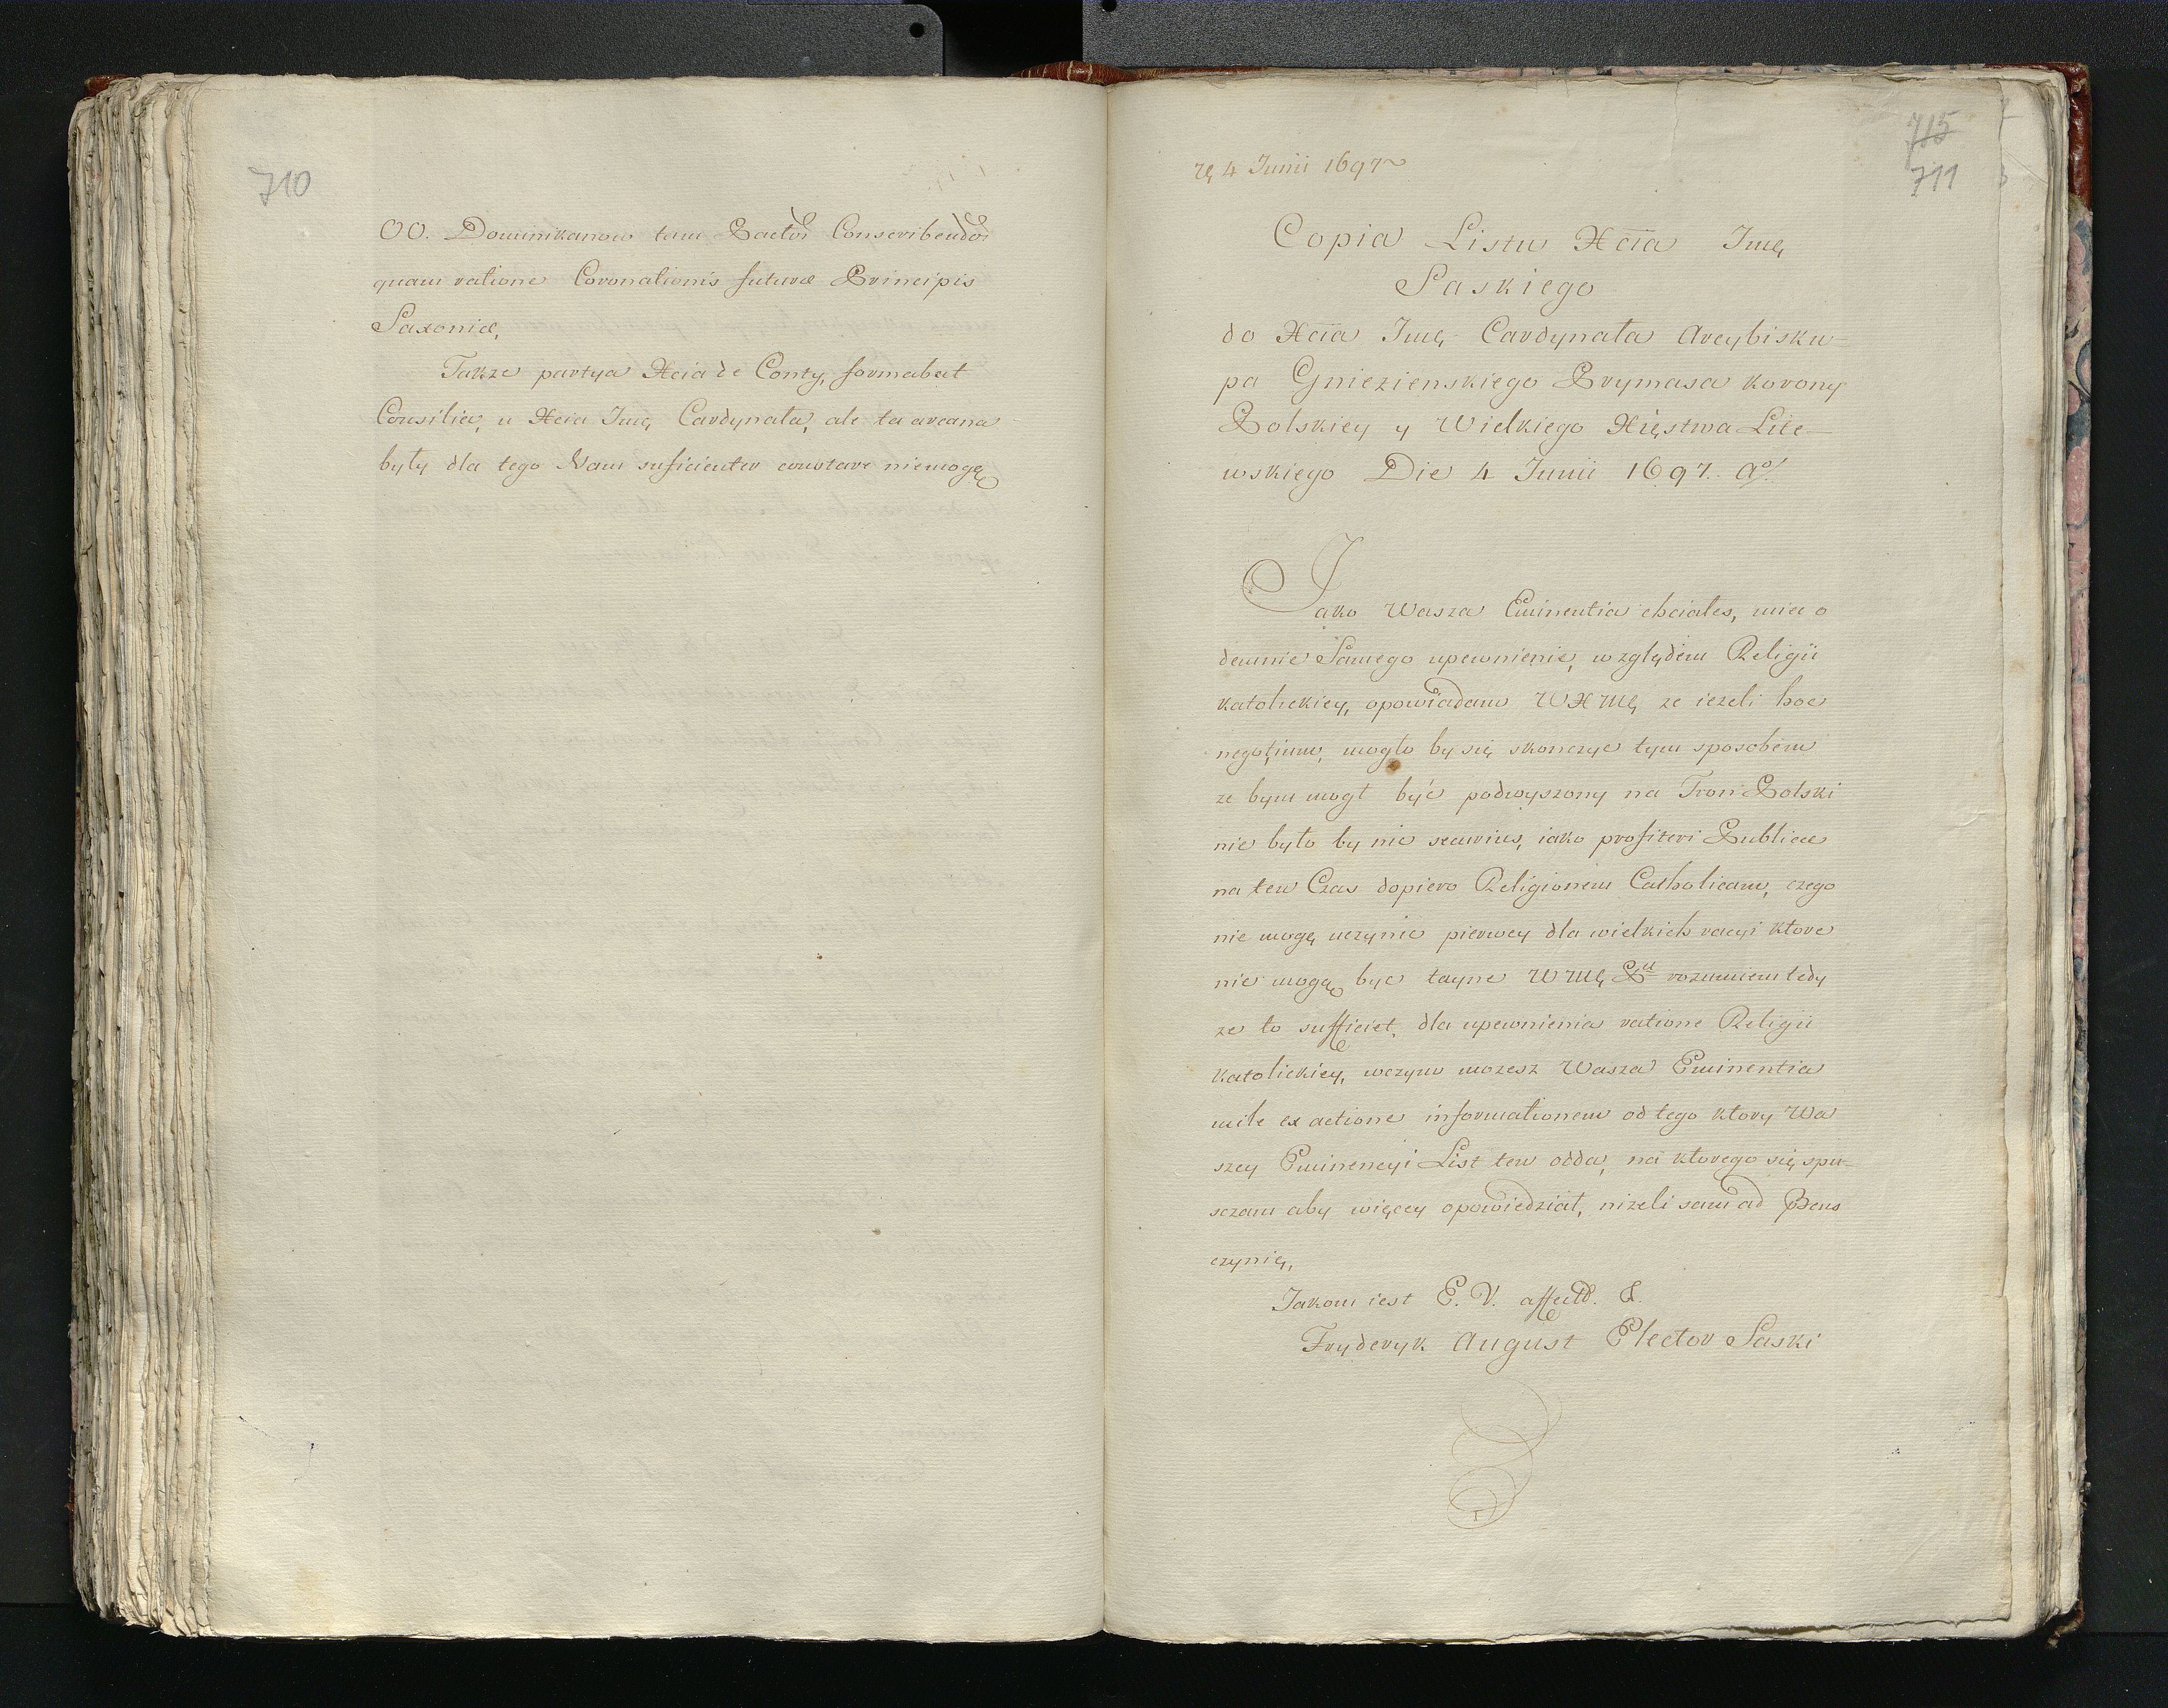 710
OO. Dominikanow tam Pactoꝝ Conscribendoꝝ
quam ratione Coronationis futuræ Principis
Saxoniæ,
Takze partya Xcia de Conty, formabat
Consilia, u Xcia Jmę Cardynała, ale ta arcana
były dla tego Nam suficienter constare niemogą
715
711
4 Junii 1697
Copia Listu Xcia Jmę
Saskiego
do Xcia Jmę Cardynała Arcybisku=
pa Gniezienskiego Prymasa korony
Polskiey y Wielkiego Xięstwa Lite=
wskiego Die 4 Junii 1697. Aº
Jako Wasza Eminentia chciałes, miec o
demnie Samego upewnienie, względem Religii
katolickiey, opowiadam WXMę ze iezeli hoc
negotium, mogło by się skonczyc tym sposobem
ze bym mogł być podwyszony na Tron Polski
nie było by nic securius, iako profiteri Publice
na ten Czas dopiero Religionem Catholicam, czego
nie mogę uczynic pierwey dla wielkich racyi ktore
nie mogą byc tayne WMę rozumiem tedy
ze to sufficiet, dla upewnienia ratione Religii
katolickiey, wczym mozesz Wasza Eminentia
informationem od tego ktory Wa
szey Eminencyi List ten odda, na ktorego się spu=
szczam aby więcey opowiedział, nizeli sam ad
czynię,
Jakom iest E. V.
Fryderyk August Elector Saski